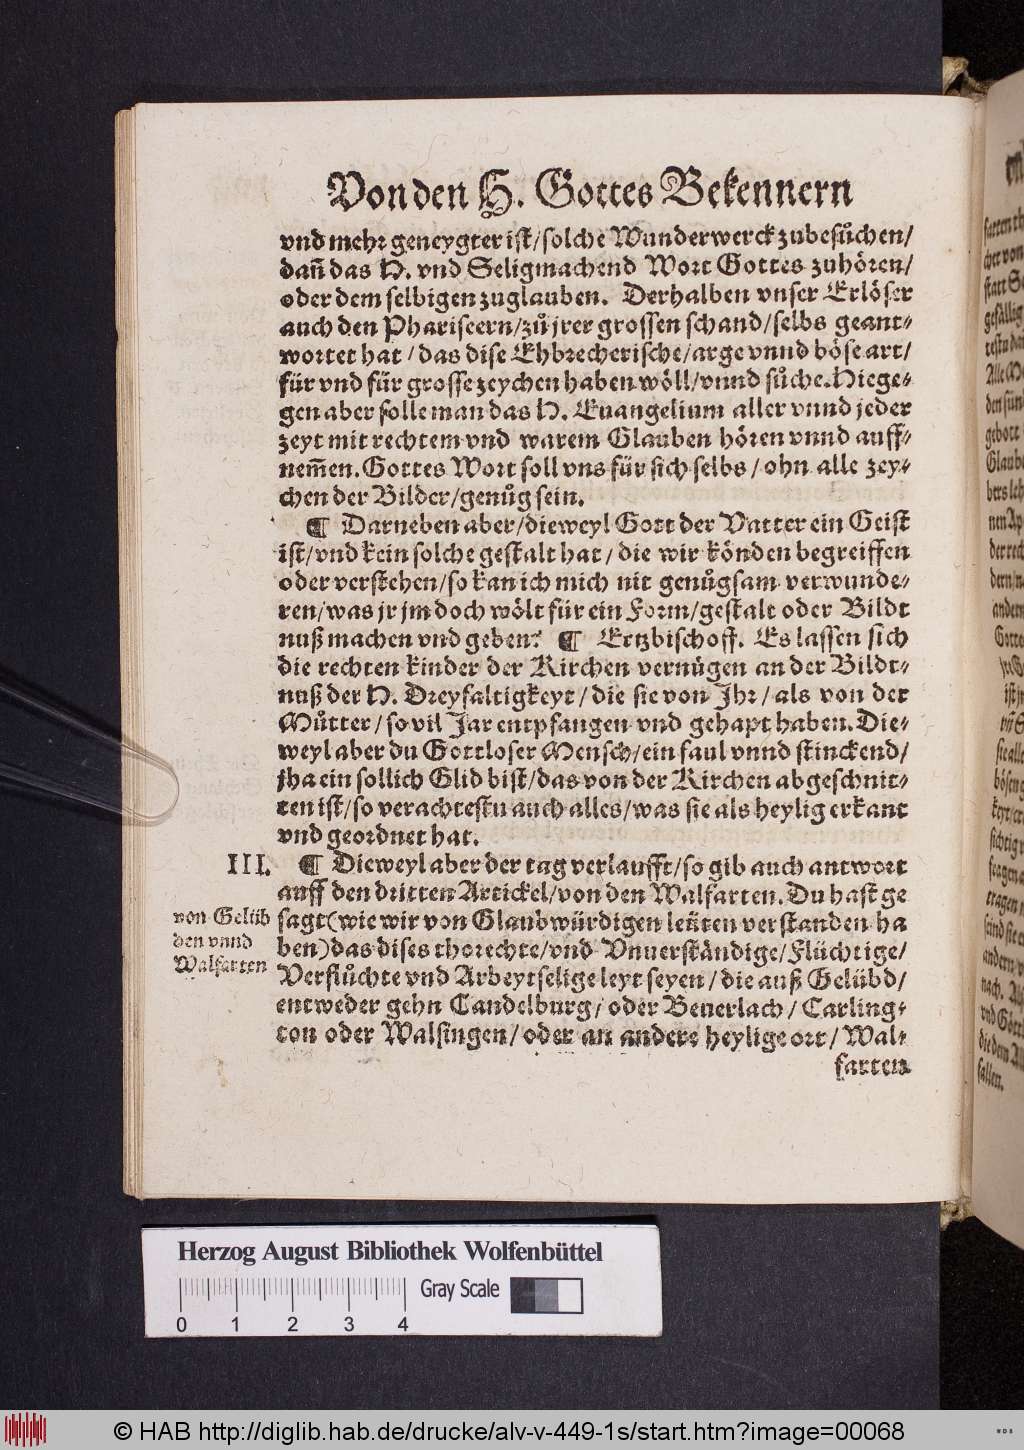 Von den H. Gottes Bekennern
vnd mehr geneygter ist/solche Wunderwerck zubesůchen/
dañ das H. vnd Seligmachend Wort Gottes zuhören/
oder dem selbigen zuglauben. Derhalben vnser Erlöser
auch den Phariseern/zů jrer grossen schand/selbs geant⸗
wortet hat/das dise Ehbrecherische/arge vnnd böse art/
für vnd für grosse zeychen haben wöll/vnnd sůche. Hiege⸗
gen aber solle man das H. Euangelium aller vnnd jeder
zeyt mit rechtem vnd warem Glauben hören vnnd auff⸗
nem̃en. Gottes Wort soll vns für sich selbs/ohn alle zey⸗
chen der Bilder/genůg sein.
¶ Darneben aber/dieweyl Gott der Vatter ein Geist
ist/vnd kein solche gestalt hat/die wir könden begreiffen
oder verstehen/so kan ich mich nit genůgsam verwunde⸗
ren/was jr jm doch wölt für ein Form/gestalt oder Bildt
nuß machen vnd geben? ¶ Ertzbischoff. Es lassen sich
die rechten kinder der Kirchen vernügen an der Bildt⸗
nuß der H. Dreyfaltigkeyt/die sie von Ihr/als von der
Můtter/so vil Jar entpfangen vnd gehapt haben. Die⸗
weyl aber du Gottloser Mensch/ein faul vnnd stinckend/
jha ein sollich Glid bist/das von der Kirchen abgeschnit⸗
ten ist/so verachtestu auch alles/was sie als heylig erkant
vnd geordnet hat.
III. ¶ Dieweyl aber der tag verlaufft/so gib auch antwort
auff den dritten Artickel/von den Walfarten. Du hast ge
sagt (wie wir von Glaubwürdigen leuten verstanden ha
ben) das dises thorechte/vnd Vnuerständige/Flüchtige/
Verflůchte vnd Arbeytselige leyt seyen/die auß Gelübd/
entweder gehn Candelburg/oder Beuerlach/Carling⸗
ton oder Walsingen/oder an andere heylige ort/Wal⸗
farten
von Gelüb
den vnnd
Walfarten
Herzog August Bibliothek Wolfenbüttel
Gray Scale
0 1 2 3 4
© HAB http://diglib.hab.de/drucke/alv-v-449-1s/start.htm?image=00068